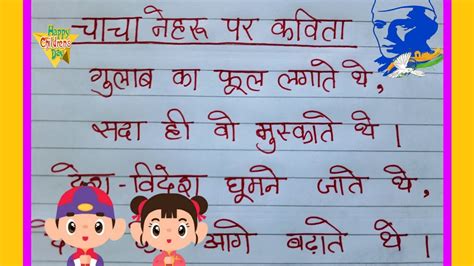 Happy
Children's
Day
चाचा नेहरू पर कविता
गुलाब का फूल लगाते थे,
सदा ही वो मुस्काते थे।
देश-विदेश घूमने जाते थे,
आगे बढ़ाते थे।